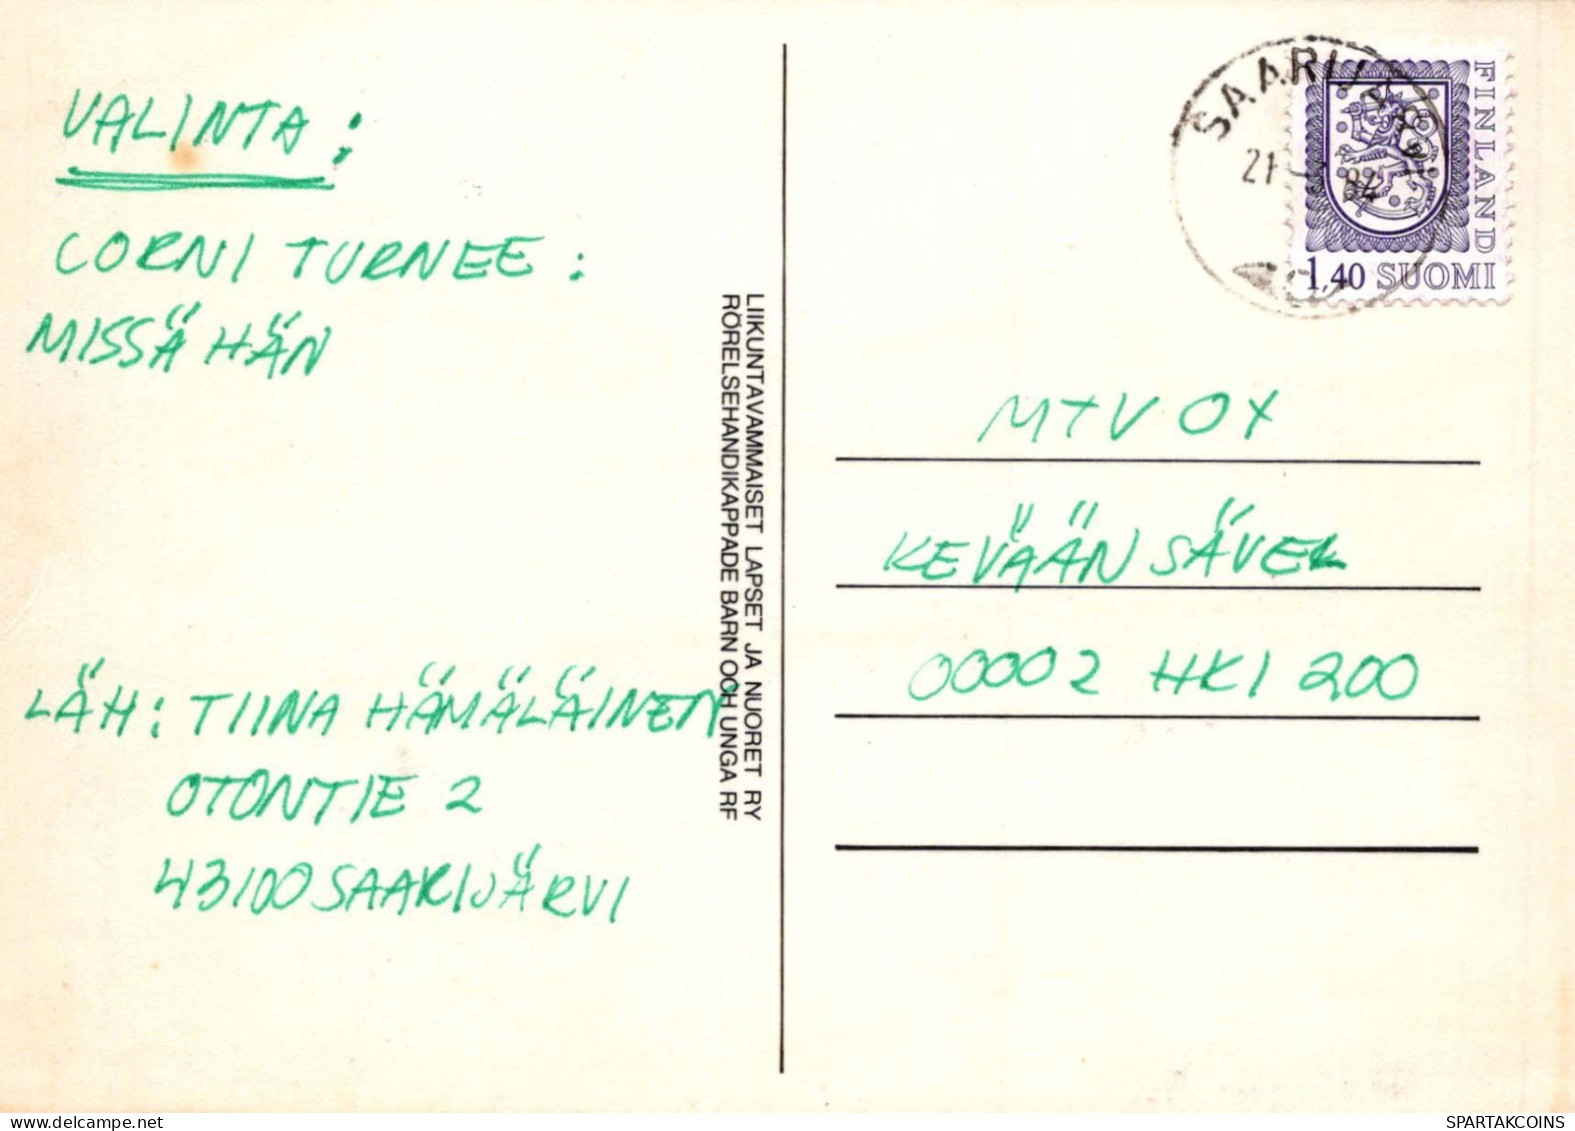 VALINTA:
CORNI TURNEE:
MISSÄ HÄN
LÄH: TIINA HÄMÄLÄINEN
OTONTIE 2
43100 SAARIJÄRVI
LIIKUNTAVAMMAISET LAPSET JA NUORET RY
RÖRELSEHANDIKAPPADE BARN OCH UNGA RF
SAARIJÄRVI
21 84
FINLAND
1,40 SUOMI
MTV OY
KEVÄÄN SÄVEL
00002 HKI 200
www.delcampe.net
SPARTAKCOINS